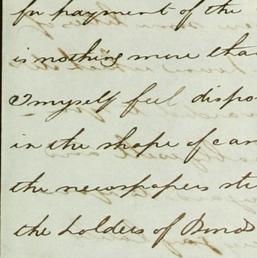 for payment of the
is nothing more tha
I myself feel dispo
in the shape of can
the newspapers sta
the holders of Bond